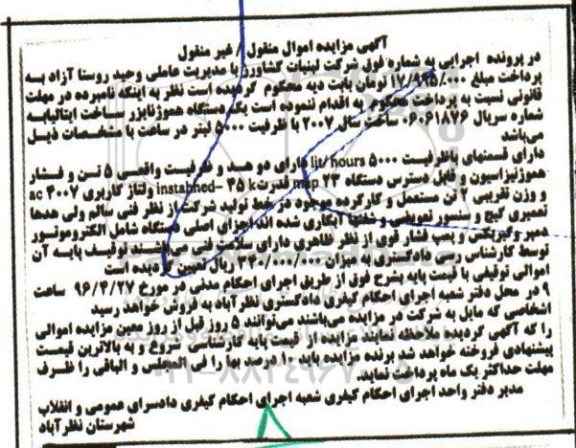 آگهی مزایده اموال منقول / غیر منقول
در پرونده اجرایی به شماره فوق شرکت لبنیات کشاورز با مدیریت عاملی وحید روستا آزاد به
پرداخت مبلغ ۱۷/۹۹۵/۰۰۰ تومان بابت دیه محکوم گردیده است نظر به اینکه نامبرده در مهلت
قانونی نسبت به پرداخت محکوم به اقدام ننموده است یک دستگاه هموژنایزر ساخت ایتالیا به
شماره سریال ۰۶۰۶۱۸۷۶ ساخت سال ۲۰۰۷ با ظرفیت ۵۰۰۰ لیتر در ساعت با مشخصات ذیل
می‌باشد
دارای قسمتهای باظرفیت ۵۰۰۰ lit/hours دارای دو هد و ظرفیت واقعی ۵ تن و فشار
هموژنیزاسیون و قابل دسترس دستگاه ۲۳ map قدرت ۴۵ k instabned– ولتاژ کاربری ۴۰۰۷ ac
و وزن تقریبی ۲ تن مستعمل و کارکرده موجود در خط تولید شرکت از نظر فنی سالم ولی
تعمیری گیج و سنسور تعویضی و
دمپر وگیربکس و پمپ فشار قوی از نظر ظاهری دارای سلامت فنی
توسط کارشناس رسمی دادگستری به میزان ریال تعیین گردیده است
اموالی توقیفی با قیمت پایه بشرح فوق از طریق اجرای احکام مدنی در مورخ ۹۶/۴/۲۷ ساعت
۹ در محل دفتر شعبه اجرای احکام کیفری دادگستری نظرآباد به فروش خواهد رسید
اشخاصی که مایل به شرکت در مزایده می‌باشند می‌توانند ۵ روز قبل از روز معین مزایده اموالی
را که آگهی گردیده ملاحظه نمایند مزایده از قیمت پایه کارشناسی شروع و به بالاترین قیمت
پیشنهادی فروخته خواهد شد برنده مزایده باید ۱۰ درصد بها را فی المجلس و الباقی را ظرف
مهلت حداکثر یک ماه پرداخت نماید.
مدیر دفتر واحد اجرای احکام کیفری شعبه اجرای احکام کیفری دادسرای عمومی و انقلاب
شهرستان نظرآباد